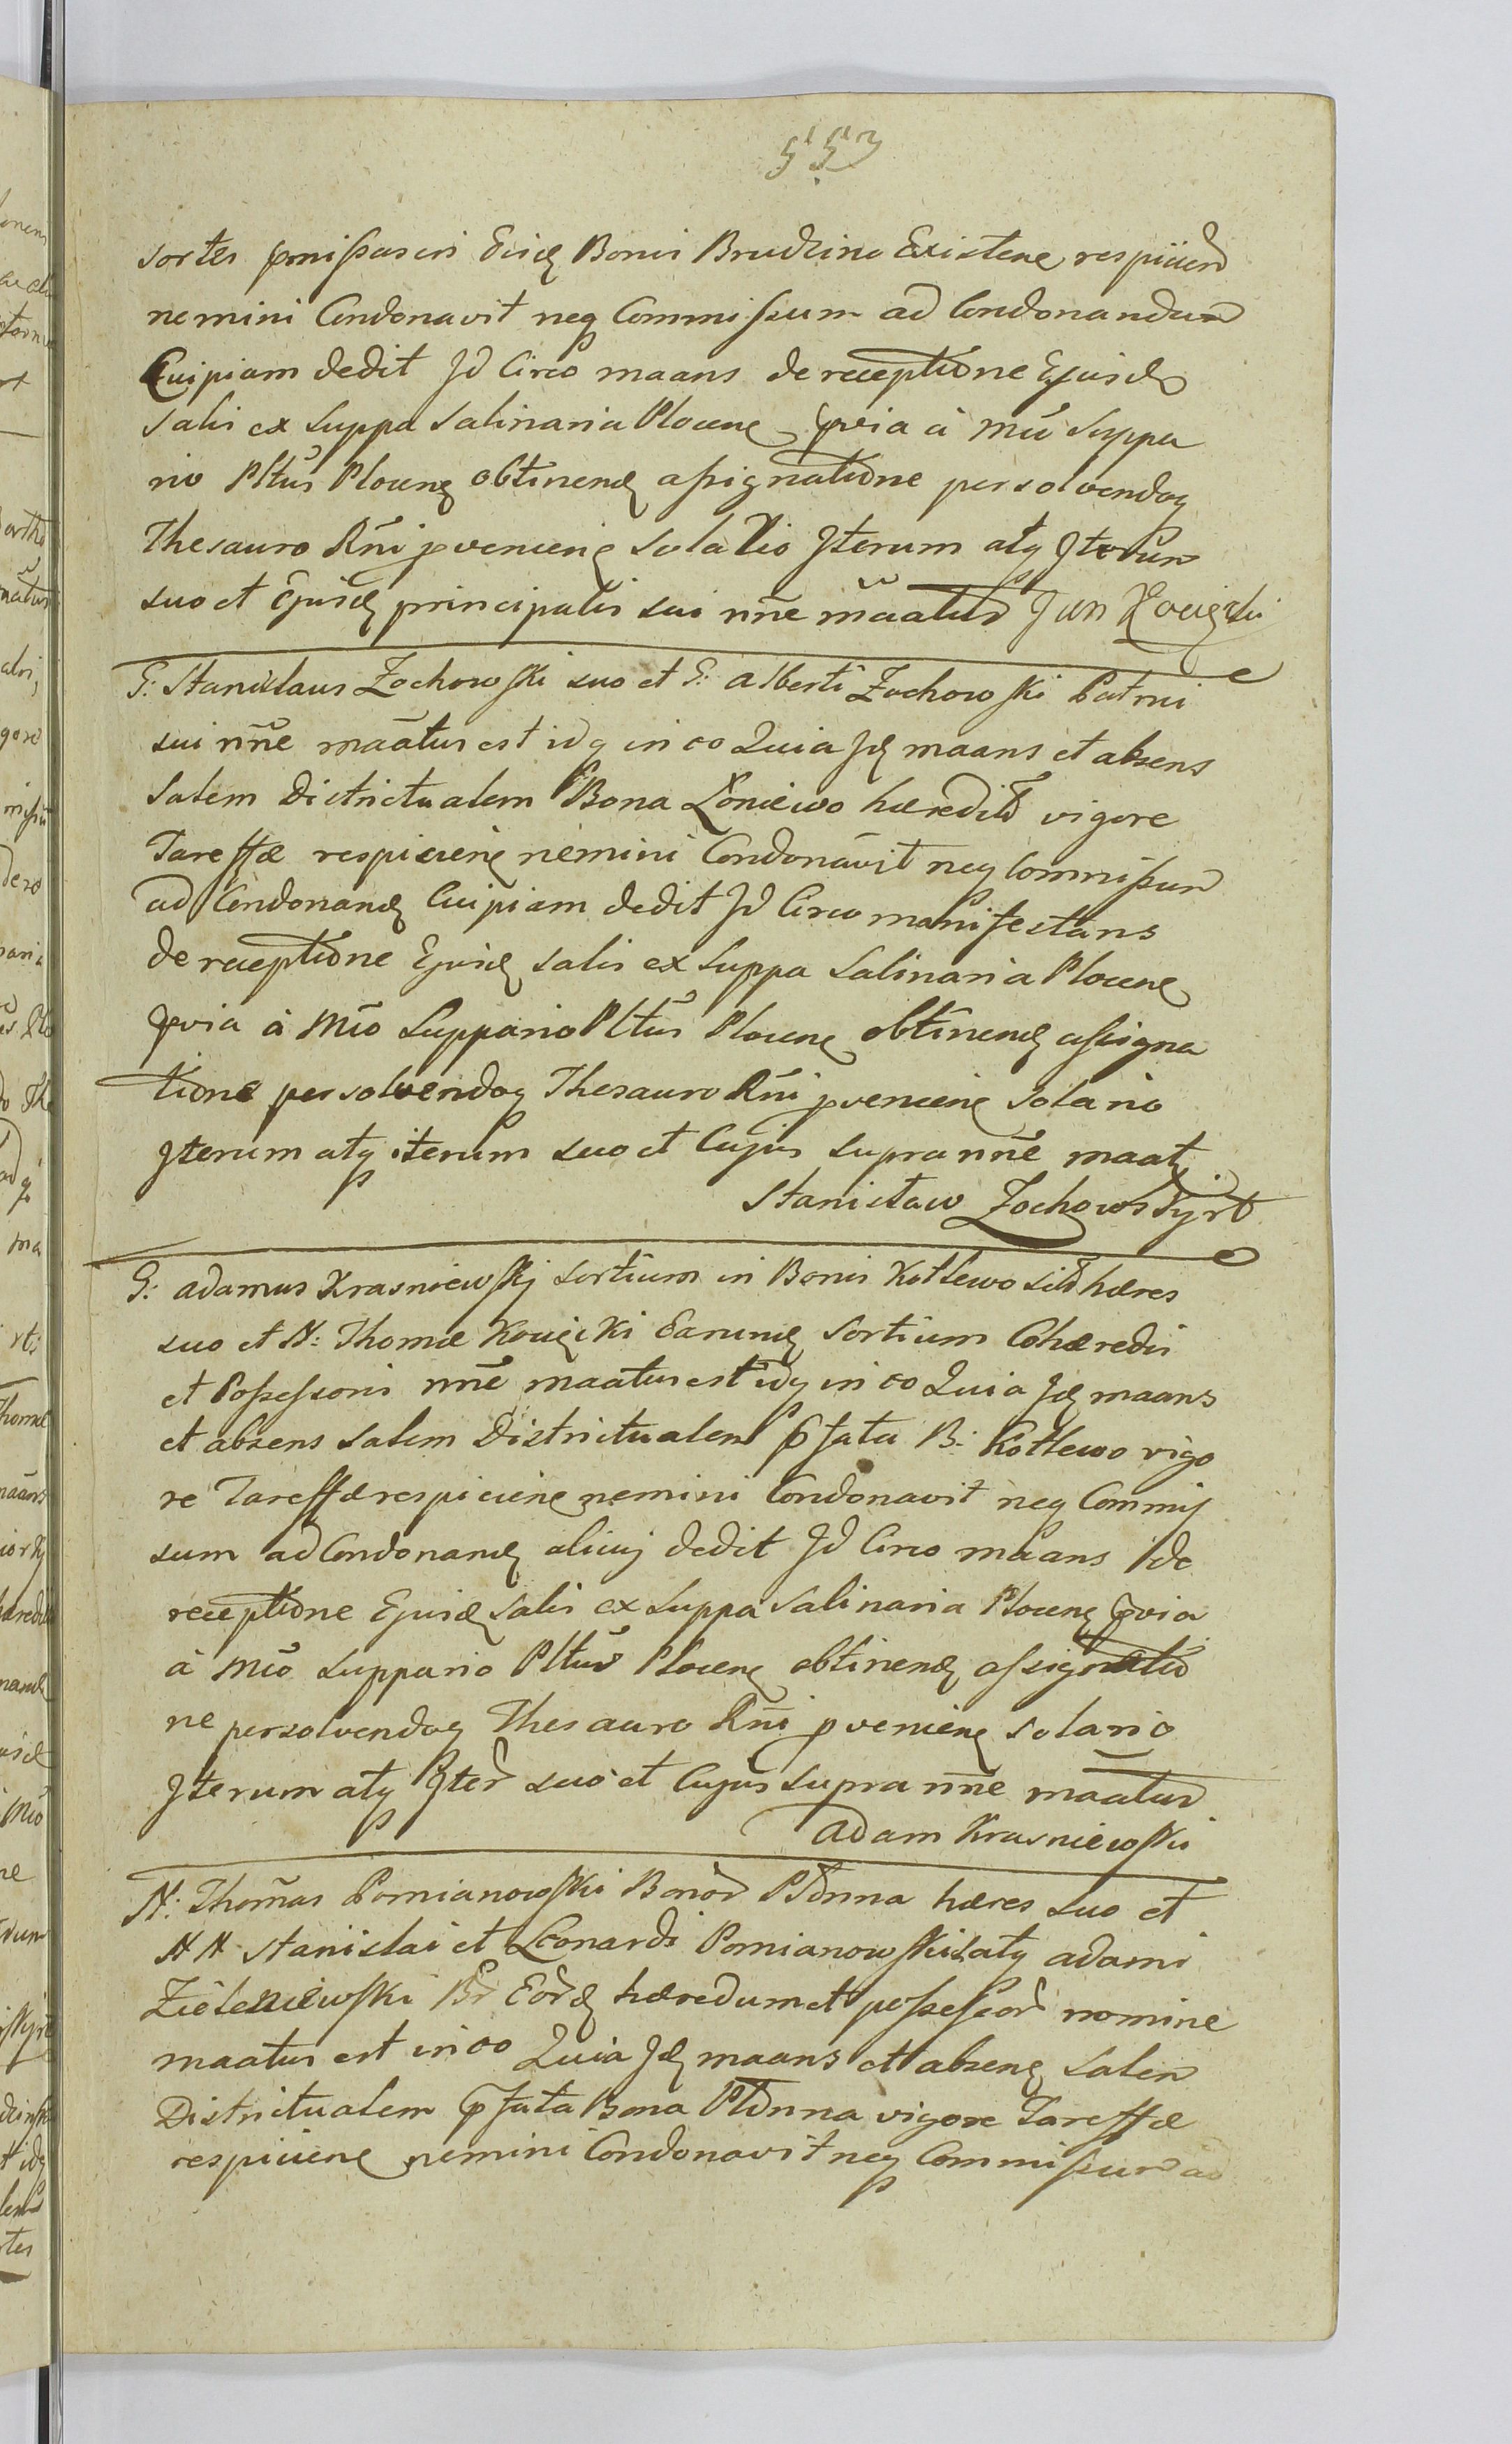 553
sortes pmissas in Eisd Bonis Brudzino Existen respicien
nemini Condonavit neq Commissum ad Condonandum
Cuipiam dedit Jd Circo maans de receptione Ejusd
salis ex Suppa Salinaria Plocen pvia à Mco Suppa
rio Pltus Plocen obtinend assignatione persolvendoq
Thesauro Rni pvenien solario Jterum atq Jterum
suo et Ejusd principalis sui nne maatus Jan
G: Stanislaus Zochowski suo et G: Alberti Zochowski Patrui
sui nne maatus est idq in eo Quia Jd maans et absens
Salem Districtualem Bona Łoniewo hæredit vigore
Tareffæ respicien nemini Condonavit neq Commissum
ad Condonand Cuipiam dedit Jd Circo manifestans
de receptione Ejusd salis ex Suppa Salinaria Plocen
pvia à Mco Suppario Pltus Plocen obtinend assigna
tione persolvendoq Thesauro Rni pvenien solario
Jterum atq iterum suo et Cujus supra nne maat
Stanisław Zochowski
G: Adamus Krasniewskj sortium in Bonis Kotlewo sit hæres
suo et N: Thomæ Kowięcki Earund Sortium Cohæredis
et Possessoris nne maatus est idq in eo Quia Jd maans
et absens Salem Districtualem pfata B: Kotlewo vigo
re Tareffæ respicien nemini Condonavit neq Commis
sum ad Condonand alicuj dedit Jd Circo maans de
receptione Ejusd Salis ex Suppa Salinaria Plocen pvia
à Mco Suppario Pltus Plocen obtinend assignatio
ne persolvendoq Thesauro Rni pvenien solario
Jterum atq Jter suo et Cujus supra nne maatus
Adam Krasniewski
N: Thomas Pomianowski Bonor hæres suo et
N N Stanislai et Leonardi Pomianowskich atq Adami
Zieleniewski Eord hæredum et possessor nomine
maatus est in eo Quia Jd maans et absens Salem
Districtualem pfata Bona vigore Tareffæ
respicien nemini Condonavit neq Commissum ad